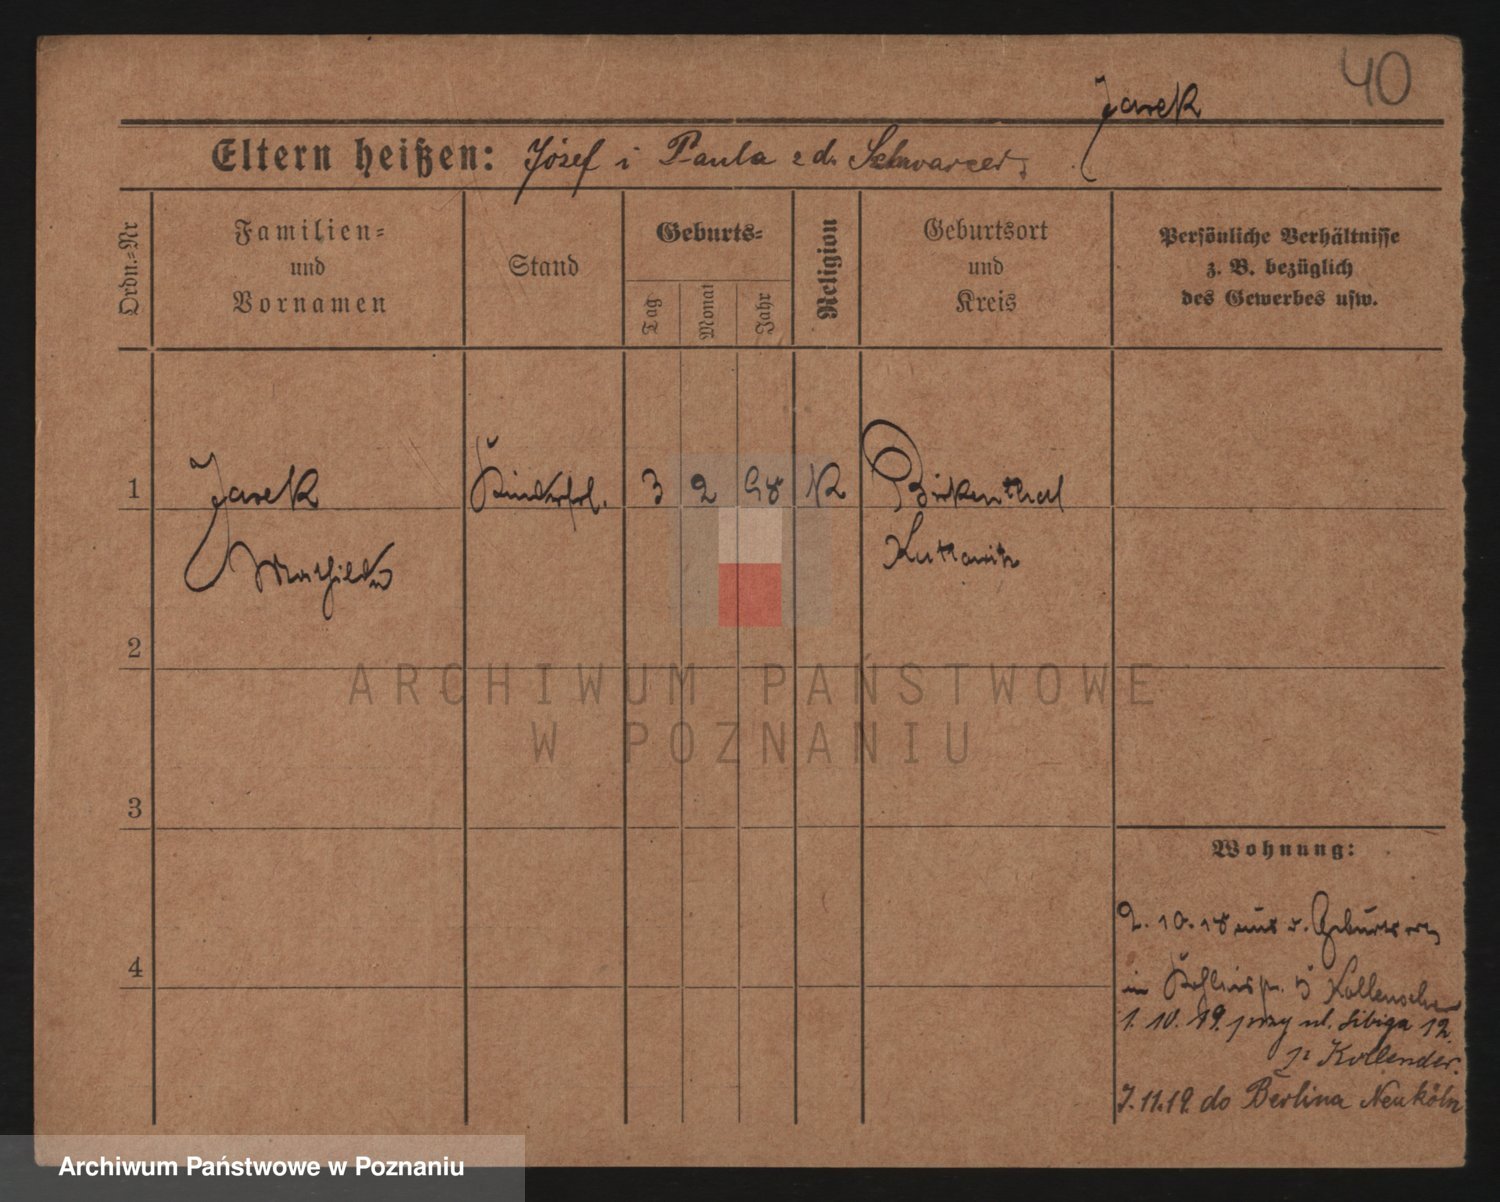 40
Jarek
Eltern heißen: Józef i Paula z d. Schwarzer
Ordn.-Nr
Familien= und Vornamen
Stand
Geburts=
Tag
Monat
Jahr
Religion
Geburtsort und Kreis
Persönliche Verhältnisse z. B. bezüglich des Gewerbes usw.
1 Jarek Kinderfrl. 3 2 98 K Birkenthal
Mathilde Kattowitz
2
3
4
Wohnung:
2. 10. 18 aus d. Geburtsort
in 5 Kollenscher
1. 10. 19. przy ul. 12
p. Kollender.
7. 11. 19. do Berlina Neukölln
ARCHIWUM PAŃSTWOWE
W POZNANIU
Archiwum Państwowe w Poznaniu